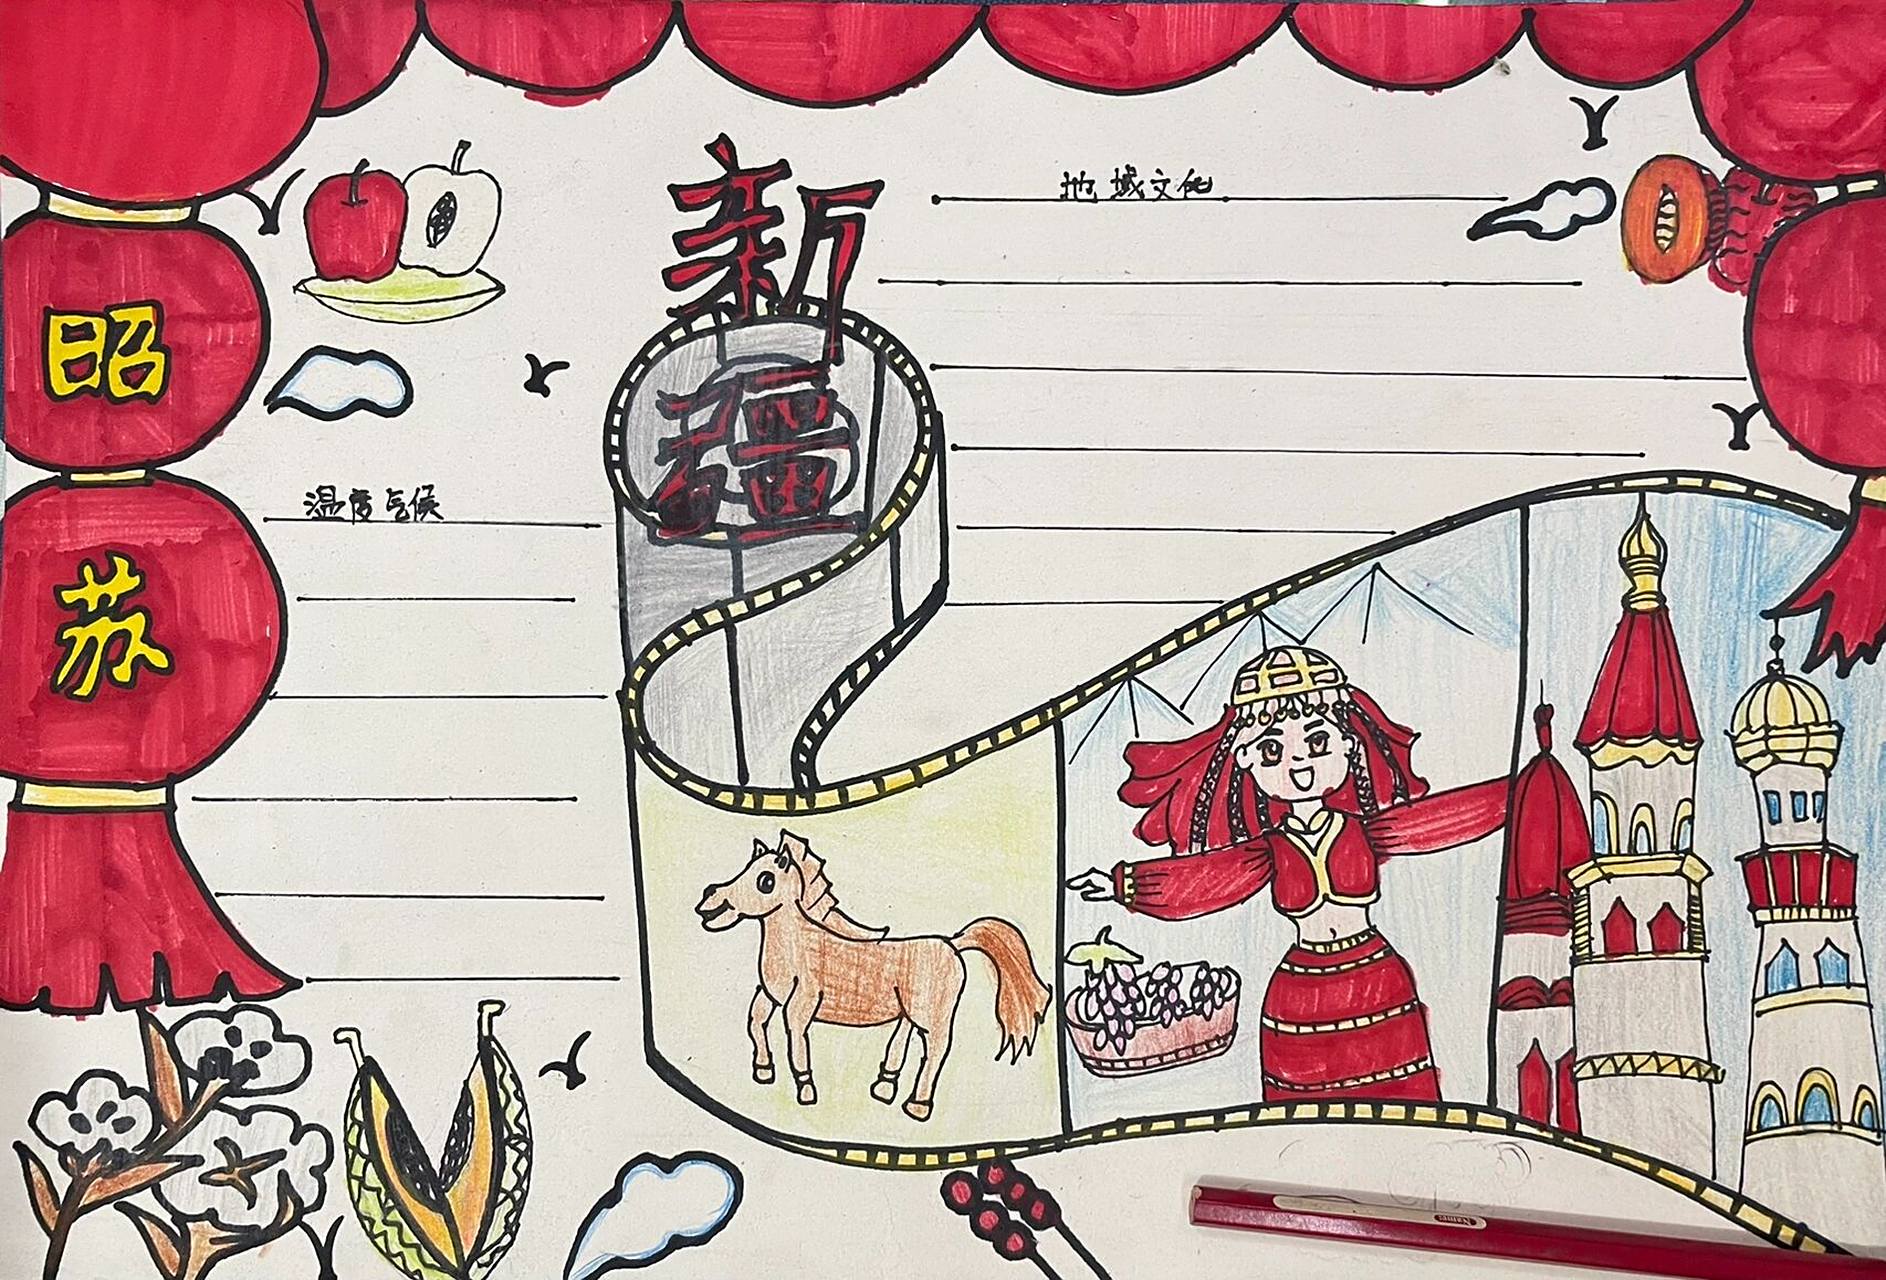 新
疆
地域文化
昭
苏
温度气候
Name: